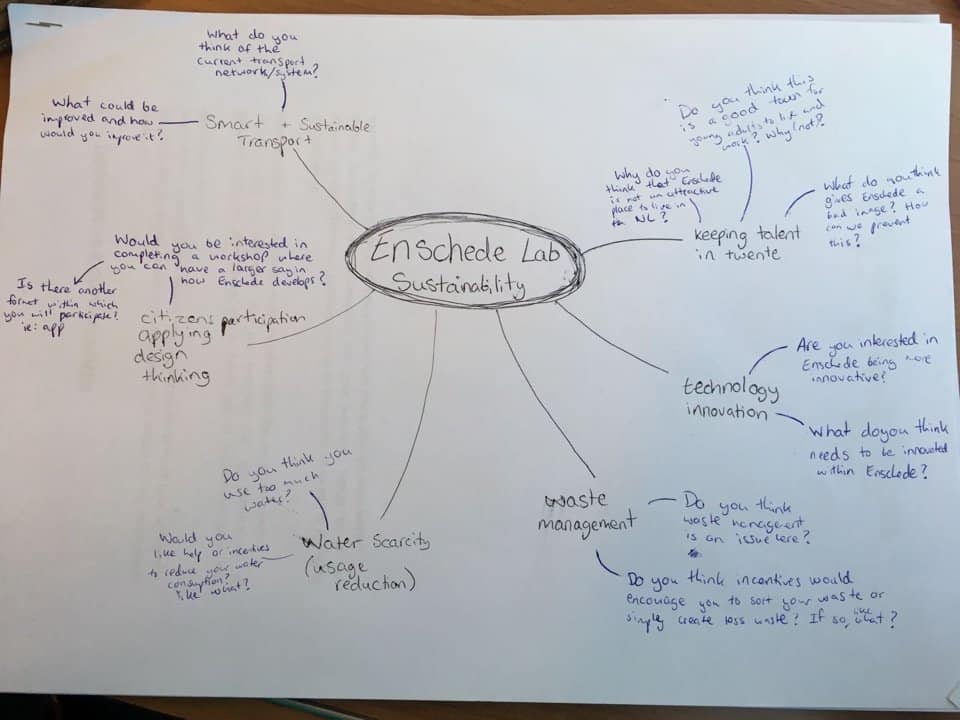 What do you
think of the
current transport
network/system?
What could be
improved and how
would you improve it?
Smart + Sustainable
Transport
Do you think this
is a good town for
young adults to live and
work? Why/not?
Why do you
think that Enschede
is not an attractive
place to live in
the NL?
What do you think
gives Enschede a
bad image? How
can we prevent
this?
keeping talent
in twente
Enschede Lab
Sustainability
Would you be interested in
completing a workshop where
you can have a larger say in
how Enschede develops?
Is there another
format within which
you will participate?
ie: app
citizens participation
applying
design
thinking
Are you interested in
Enschede being more
innovative?
technology
innovation
What do you think
needs to be innovated
within Enschede?
Do you think you
use too much
water?
Would you
like help or incentives
to reduce your water
consumption?
like what?
Water Scarcity
(usage
reduction)
waste
management
Do you think
waste management
is an issue here?
Do you think incentives would
encourage you to sort your waste or
simply create less waste? If so, like what?